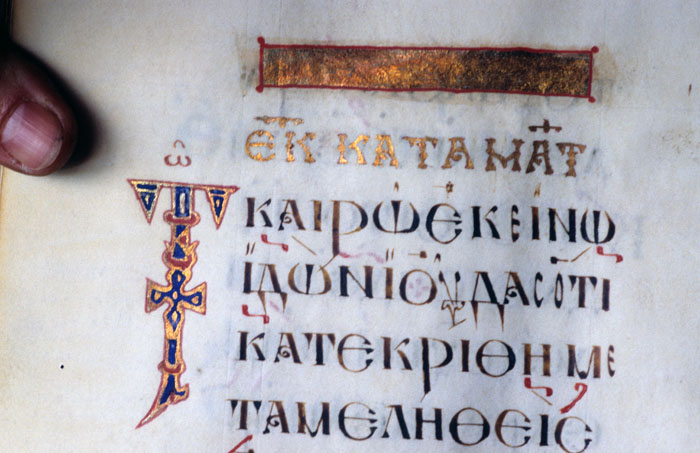 ΕΚ ΚΑΤΑ ΜΑΤ
Τῶ ΚΑΙΡῶ ΕΚΕΙΝΩ
ΪΔΩΝ ΪΟΥΔΑΣ ΟΤΙ
ΚΑΤΕΚΡΙΘΗ ΜΕ
ΤΑΜΕΛΗΘΕΙΣ